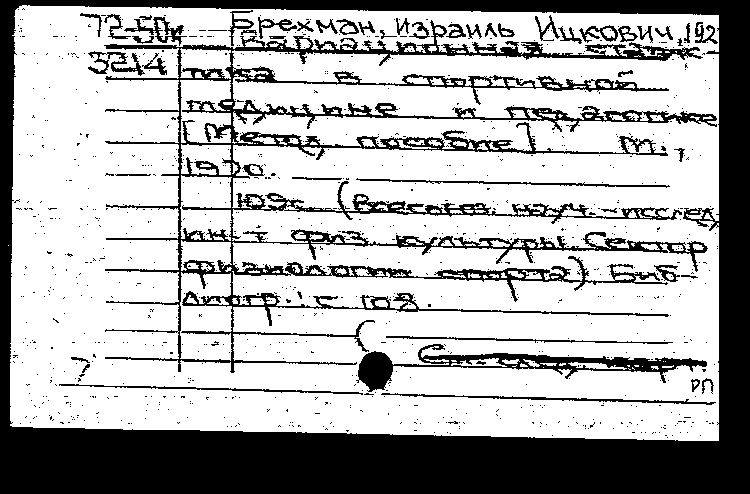 72-50к Брехман, Израиль Ицкович, 192
3214 Вариационная статис-
тика в спортивной
медицине и педагогике
[Метод. пособие]. М.,
1970.
109с. (Всесоюз. науч.-исслед.
ин-т физ. культуры. Сектор
физиологии спорта) Биб-
лиогр.: с 108.
См. след. карт.
7
РП